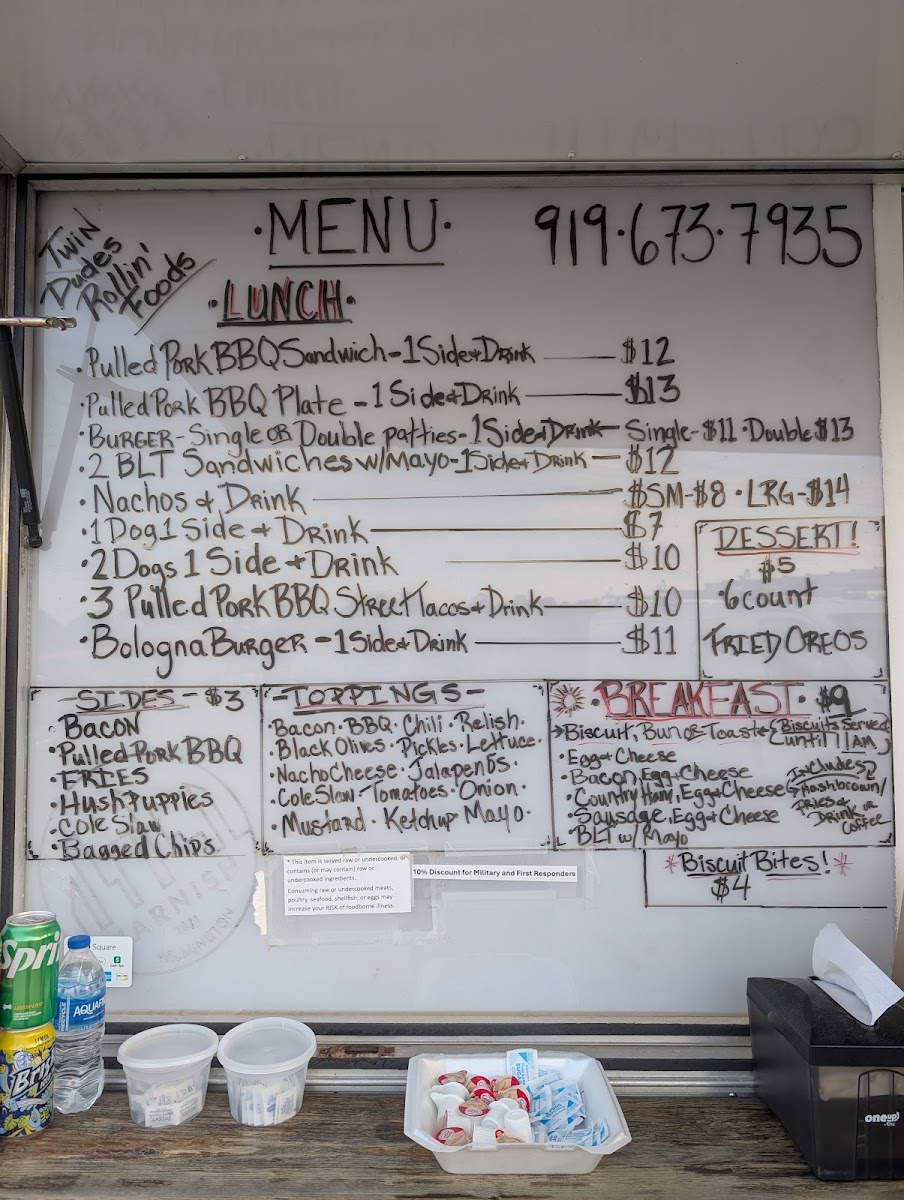 TWIN
Dudes
Rollin'
Foods
·MENU·
919·673·7935
·LUNCH·
·Pulled Pork BBQ Sandwich-1 Side+Drink — $12
·Pulled Pork BBQ Plate-1 Side+Drink — $13
·BURGER-Single OR Double patties-1 Side+Drink- Single-$11·Double $13
·2 BLT Sandwiches w/Mayo-1 Side+Drink — $12
·Nachos + Drink — $SM-$8·LRG-$14
·1 Dog 1 Side + Drink — $7
·2 Dogs 1 Side + Drink — $10
·3 Pulled Pork BBQ Street Tacos+Drink — $10
·Bologna Burger -1 Side+Drink — $11
DESSERT!
$5
·6 count
FRIED OREOS
-SIDES- $3
·BACON
·Pulled Pork BBQ
·FRIES
·Hush Puppies
·Cole Slaw
·Bagged Chips
-TOPPINGS-
·Bacon·BBQ·Chili·Relish·
·Black Olives·Pickles·Lettuce·
·Nacho Cheese·Jalapenos·
·Cole Slaw·Tomatoes·Onion·
·Mustard·Ketchup·Mayo·
·BREAKFAST· $9
Biscuit, Bun or Toast
Biscuits Served
until 11AM
·Egg+Cheese
·Bacon, Egg+Cheese
·Country Ham, Egg+Cheese
·Sausage, Egg+Cheese
·BLT w/Mayo
Includes
Hashbrown/
Fries+
Drink or
Coffee
*Biscuit Bites!*
$4
* This item is served raw or undercooked, or
contains (or may contain) raw or
undercooked ingredients.
Consuming raw or undercooked meats,
poultry, seafood, shellfish, or eggs may
increase your RISK of foodborne illness.
10% Discount for Military and First Responders
Square
Spri
LEMON-LIME
AQUAFI
Bri
oneup